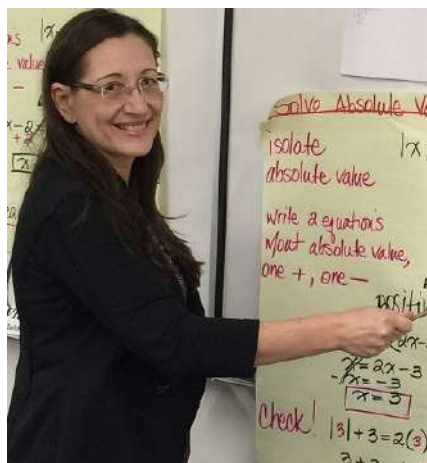 ns |x
value
x-2
Solve Absolute Va
isolate |x
absolute value
write 2 equations
w/out absolute value,
one +, one —
positiv
(2x-
x = 2x-3
-x = -3
x = 3
Check! |3|+3=2(3)